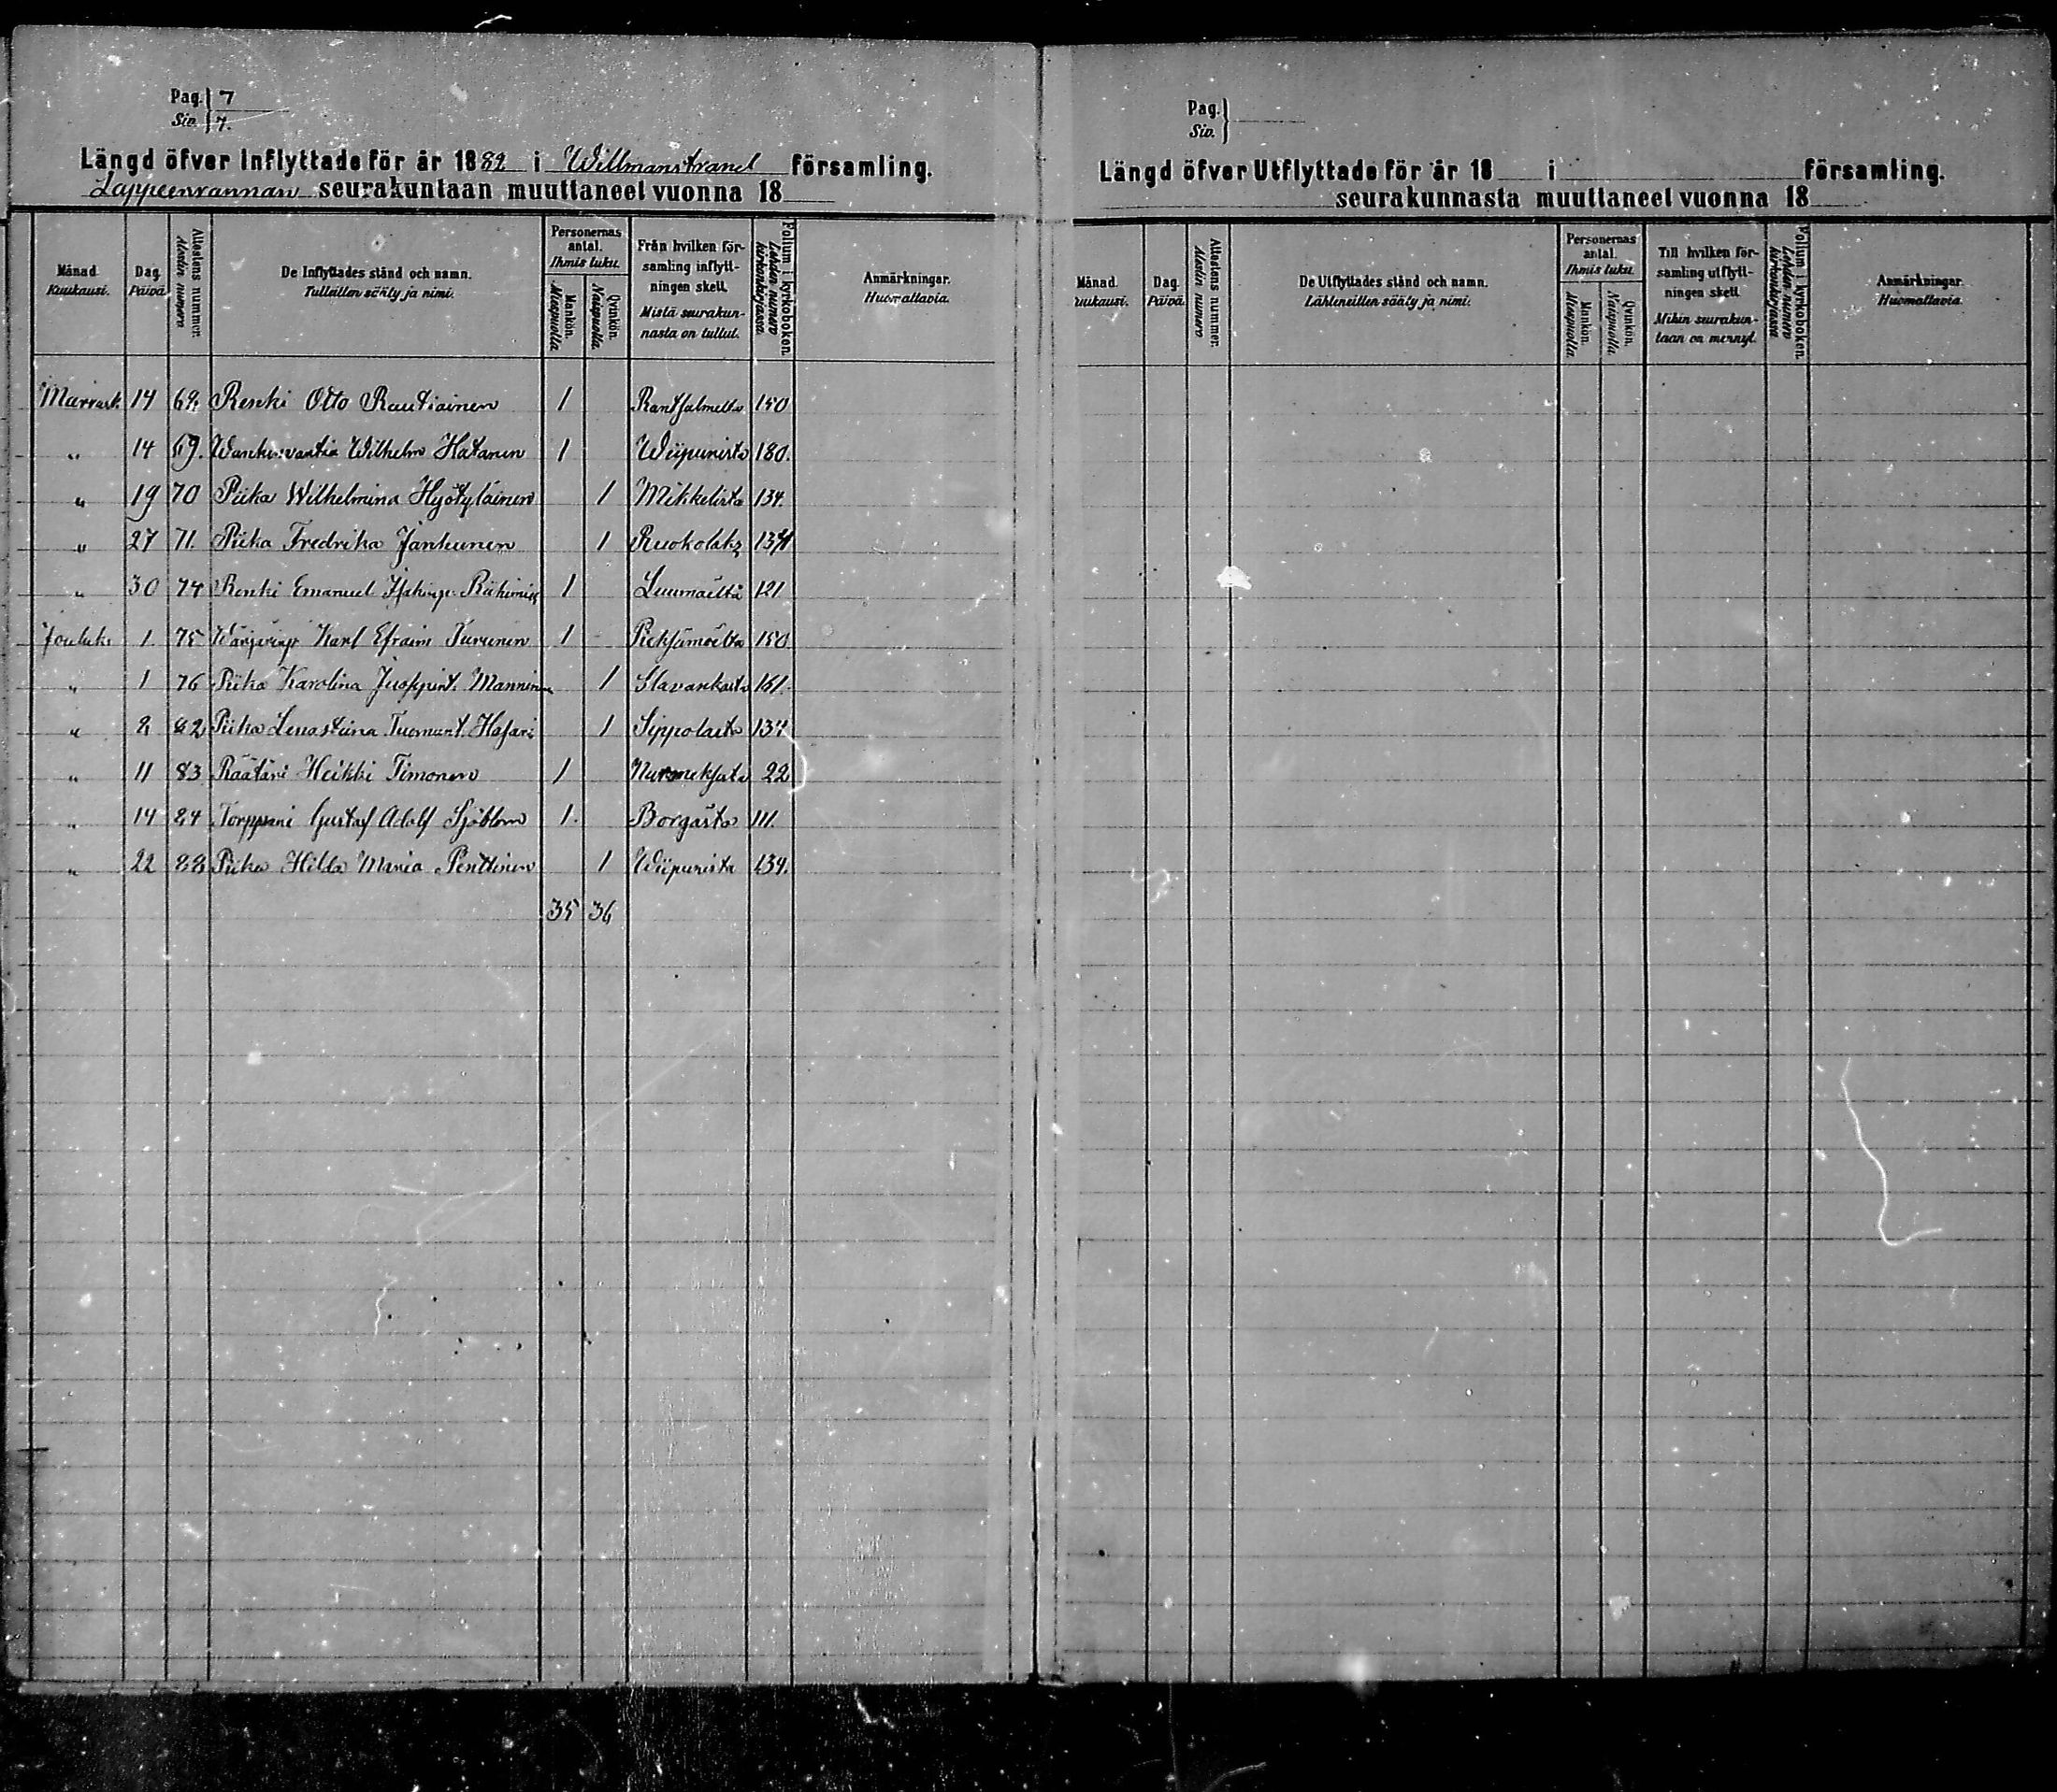 Pag. 7
Siv. 7.
Längd öfver Inflyttade för år 1882 i Willmanstrand församling.
Lappeenrannan seurakuntaan muuttaneet vuonna 18
Månad. Kuukausi. Dag. Päivä. Attestens nummer. Atestin numero. De Inflyttades stånd och namn. Tulleitten sääty ja nimi. Personernas antal. Ihmis luku. Mankön. Miespuolia Qvinkön. Naispuolia. Från hvilken församling inflyttningen skett. Mistä seurakunnasta on tullut. Folium i kyrkoboken. Lehden numero kirkonkirjassa Anmärkningar. Huomattavia.
Marrask. 14 68. Renki Otto Rautiainen 1 Rantsalmelta 150
" 14 69. Wankinvartia Wilhelm Hatanen 1 Wiipurista 180.
" 19 70 Piika Wilhelmina Hyötyläinen 1 Mikkelistä 134.
" 27 71. Piika Fredrika Janhunen 1 Ruokolaks 134
" 30 74 Renki Emanuel 1 Luumäeltä 121
Jouluk. 1 75 Karl Efraim Turunen 1 Pieksämäeltä 150
" 1 76 Piika Karolina Manninen 1 Slavankasta 161.
" 8 82 Piika Leenastiina Tuomant. 1 Sippolasta 134
" 11 83 Räätäri Heikki Timonen 1 Nurmeksesta 22
" 14 84 Torppari Gustaf Adolf Sjöblom 1. Borgåsta 111.
" 22 88 Piika Hilda Maria Penttinen 1 Wiipurista 134.
35 36
Pag.
Siv.
Längd öfver Utflyttade för år 18 i församling.
seurakunnasta muuttaneet vuonna 18
Månad. uukausi. Dag. Päivä. Attestens nummer. Atestin numero De Utflyttades stånd och namn. Lähteneitten sääty ja nimi. Personernas antal. Ihmis luku. Mankön. Miespuolia Qvinkön. Naispuolia Till hvilken församling utflyttningen skett. Mihin seurakuntaan on mennyt. Folium i kyrkoboken. Lehden numero kirkonkirjassa Anmärkningar. Huomattavia.